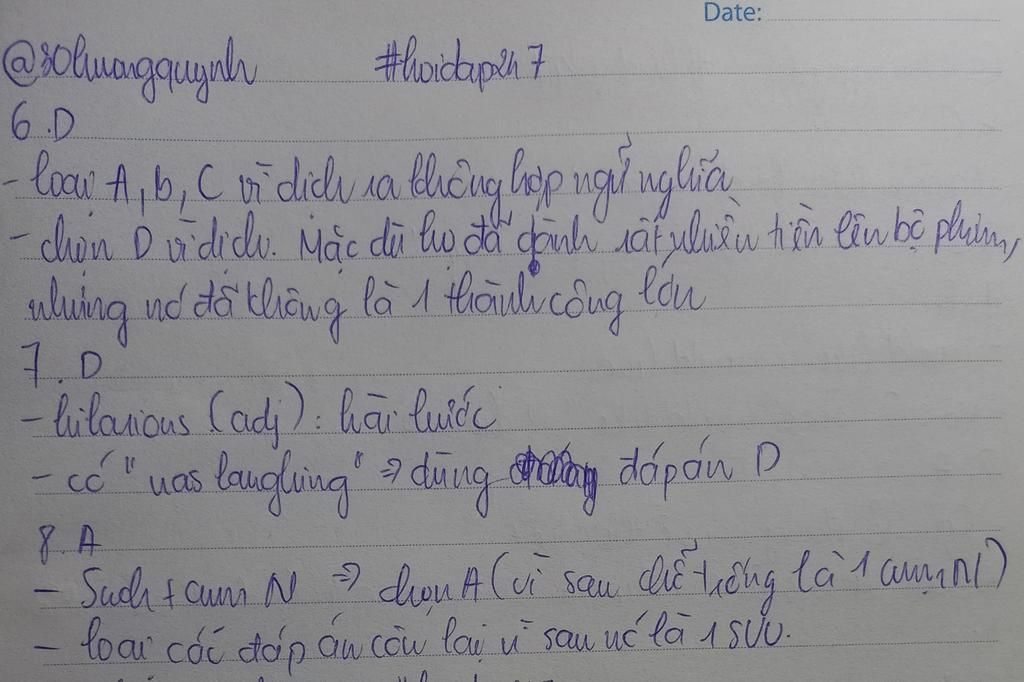 Date:
@30huongquynh #hoidap247
6.D
- loại A, b, C vì dịch ra không hợp ngữ nghĩa
- chọn D vì dịch. Mặc dù họ đã dành rất nhiều tiền lên bộ phim,
nhưng nó đã không là 1 thành công lớn
7. D
- hilarious (adj): hài hước
- có "was laughing" => dùng đáp án D
8. A
- Such + cụm N => chọn A (vì sau chỗ trống là 1 cụm N)
- loại các đáp án còn lại vì sau nó là 1 SVO.